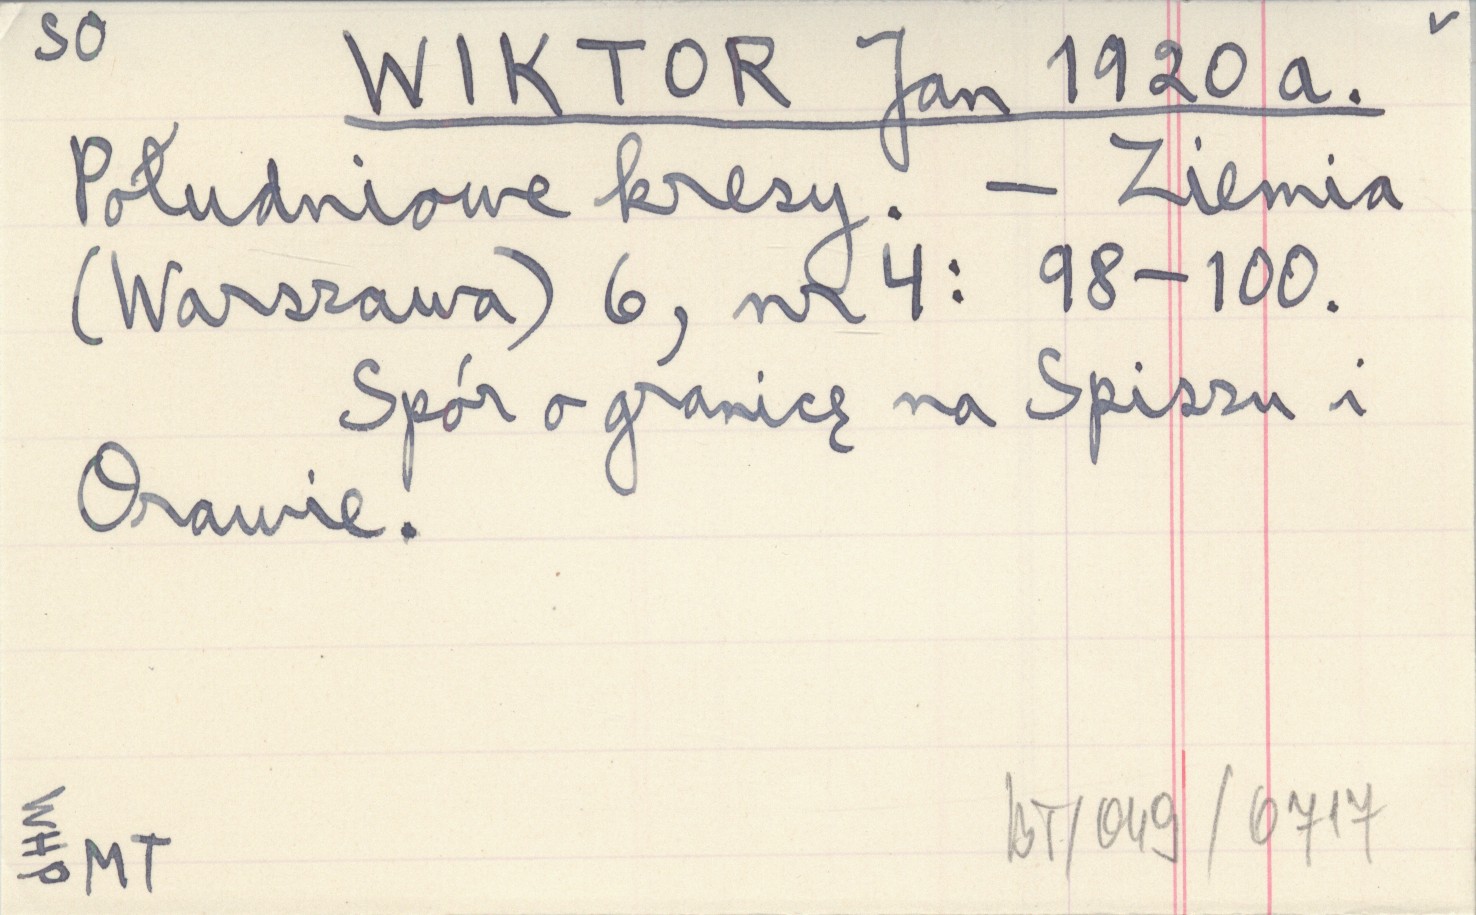 SO
WIKTOR Jan 1920 a.
Południowe kresy. — Ziemia
(Warszawa) 6, nr 4: 98-100.
Spór o granicę na Spiszu i
Orawie.
WHP
MT
BT/049/0717